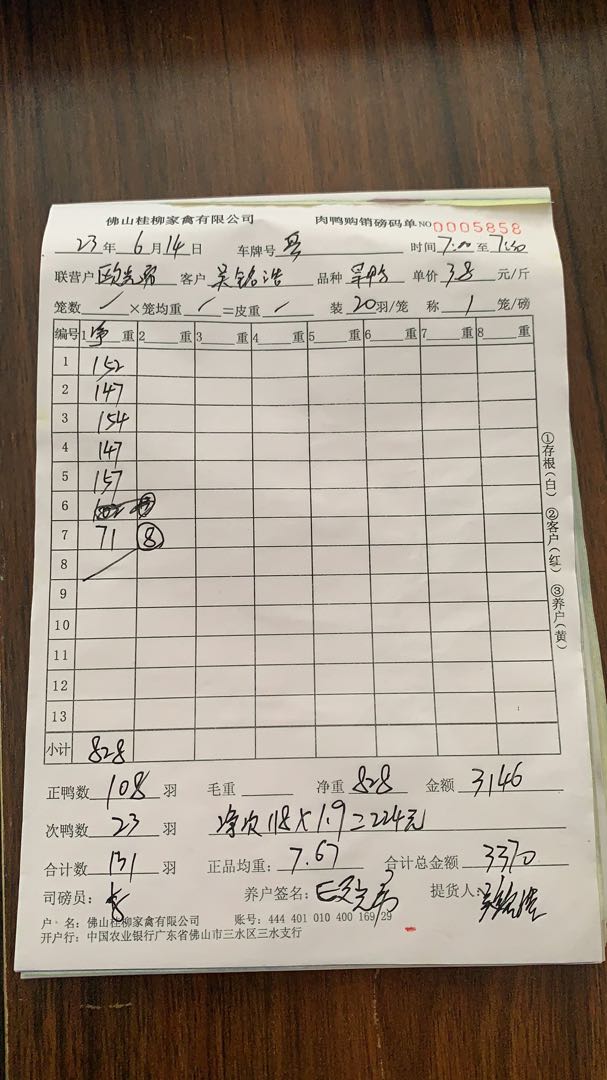 佛山桂柳家禽有限公司 肉鸭购销磅码单 NO 0005858
23年 6月 14日 车牌号 时间 7:00 至 7:30
联营户 客户 吴铭浩 品种 单价 3.8 元/斤
笼数 / ×笼均重 / =皮重 / 装 20 羽/笼 称 1 笼/磅
编号 1 净 重 2 重 3 重 4 重 5 重 6 重 7 重 8 重
1 152
2 147
3 154
4 147
5 157
6
7 71 ⑧
8
9
10
11
12
13
小计 828
①存根(白) ②客户(红) ③养户(黄)
正鸭数 108 羽 毛重 净重 828 金额 3146
次鸭数 23 羽 净次 118×1.9=224元
合计数 131 羽 正品均重: 7.67 合计总金额 3370
司磅员: 养户签名: 提货人: 吴铭浩
户 名: 佛山桂柳家禽有限公司 账号: 444 401 010 400 169 29
开户行: 中国农业银行广东省佛山市三水区三水支行